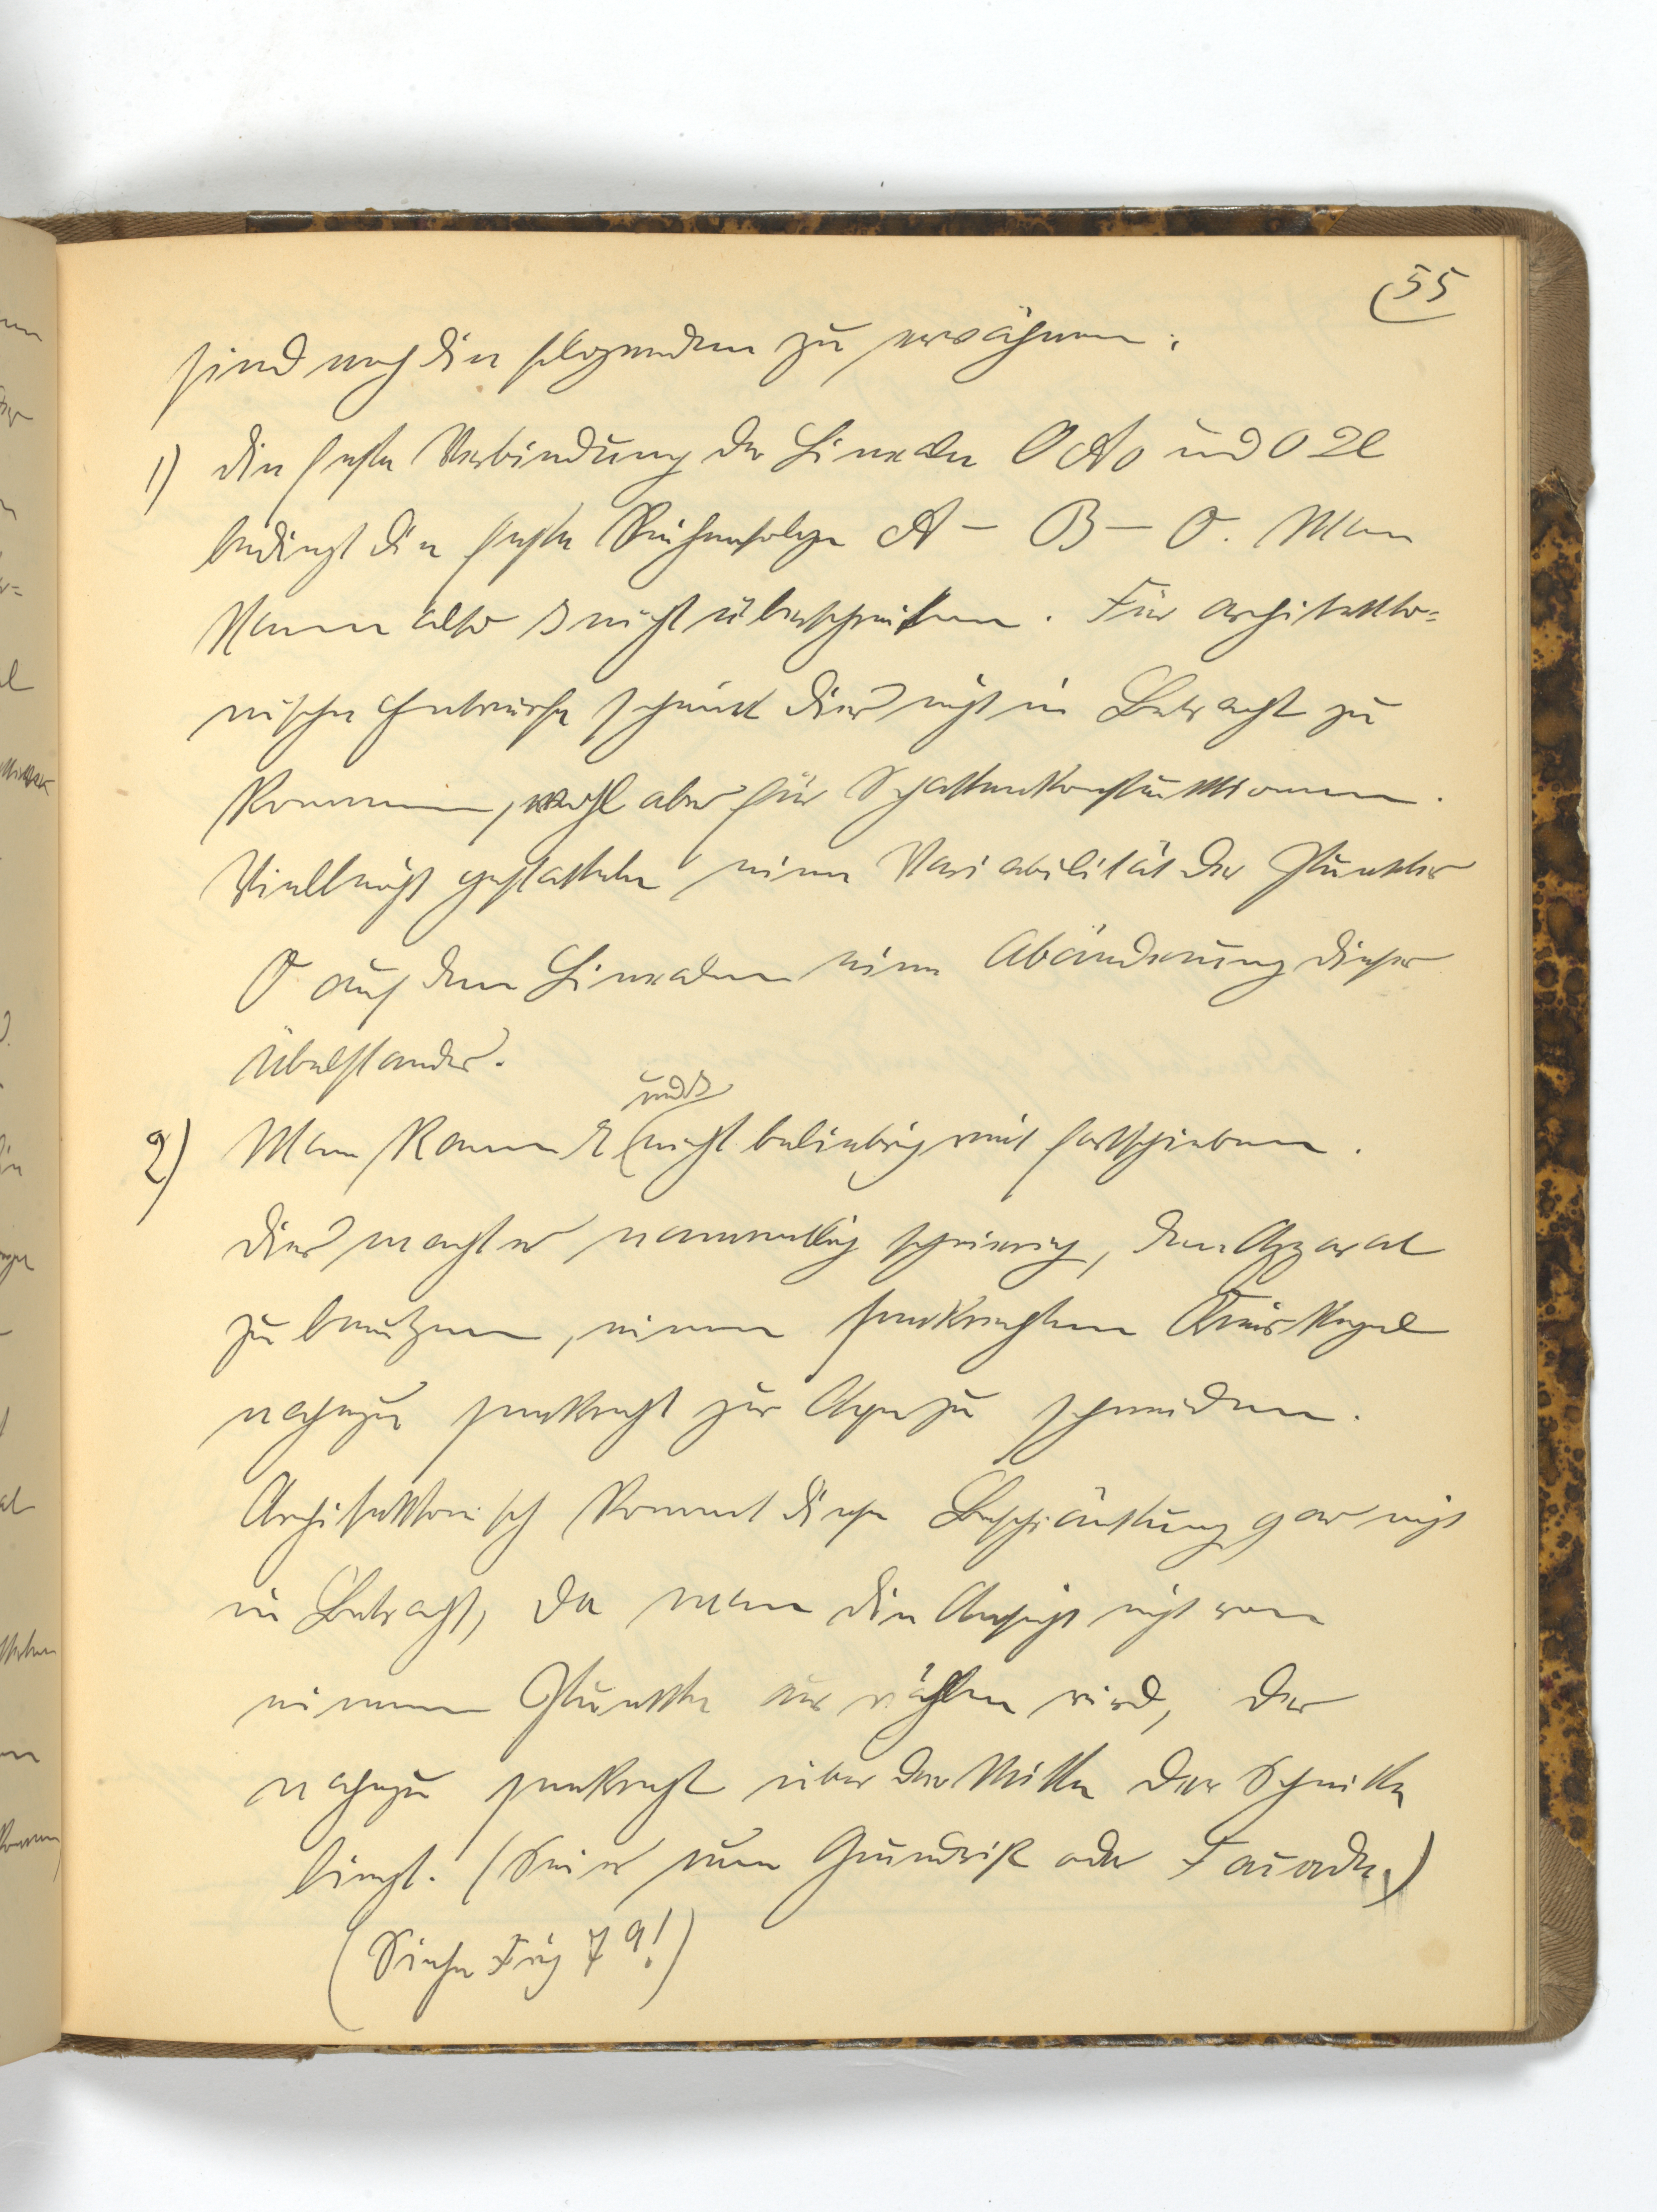 55
sind noch die folgenden zu erwähnen:
1) die feste Verbindung der Lineale O A₀ und O
bedingt die feste Reihenfolge A – B – O. Man
kann also B nicht überschreiten. Für architekto=
nische Entwürfe scheint dies nicht in Betracht zu
kommen, wohl aber für Schattenkonstruktionen.
Vielleicht gestattete eine Variabilität des Punktes
O auf den Linealen eine Abänderung dieses
Übelstandes.
und B
2) Man kann nicht beliebig weit fortschieben.
Dies macht es namentlich schwierig, den Apparat
zu benutzen, einen senkrechten Kreiskegel
nahezu senkrecht zur Axe zu schneiden.
Architektonisch kommt diese Beschränkung gar nicht
in Betracht, da man die Ansicht nicht von
einem Punkte aus wählen wird, der
nahezu senkrecht über der Mitte der Schnitte
liegt. (Sei es nun Grundriß oder Façade.)
(Siehe Fig 79!)